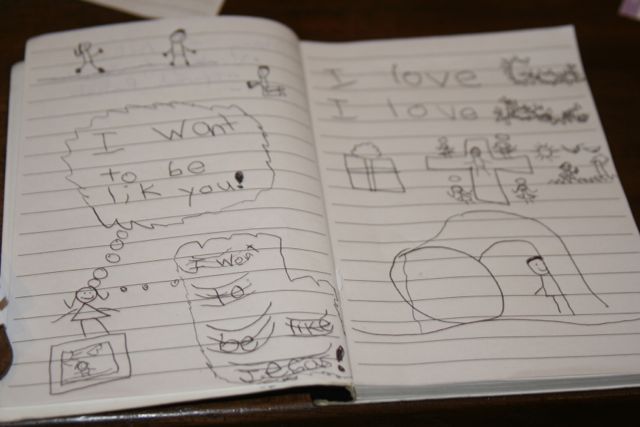 I Want
to be
lik you!
I Want
to
be like
I love God
I love